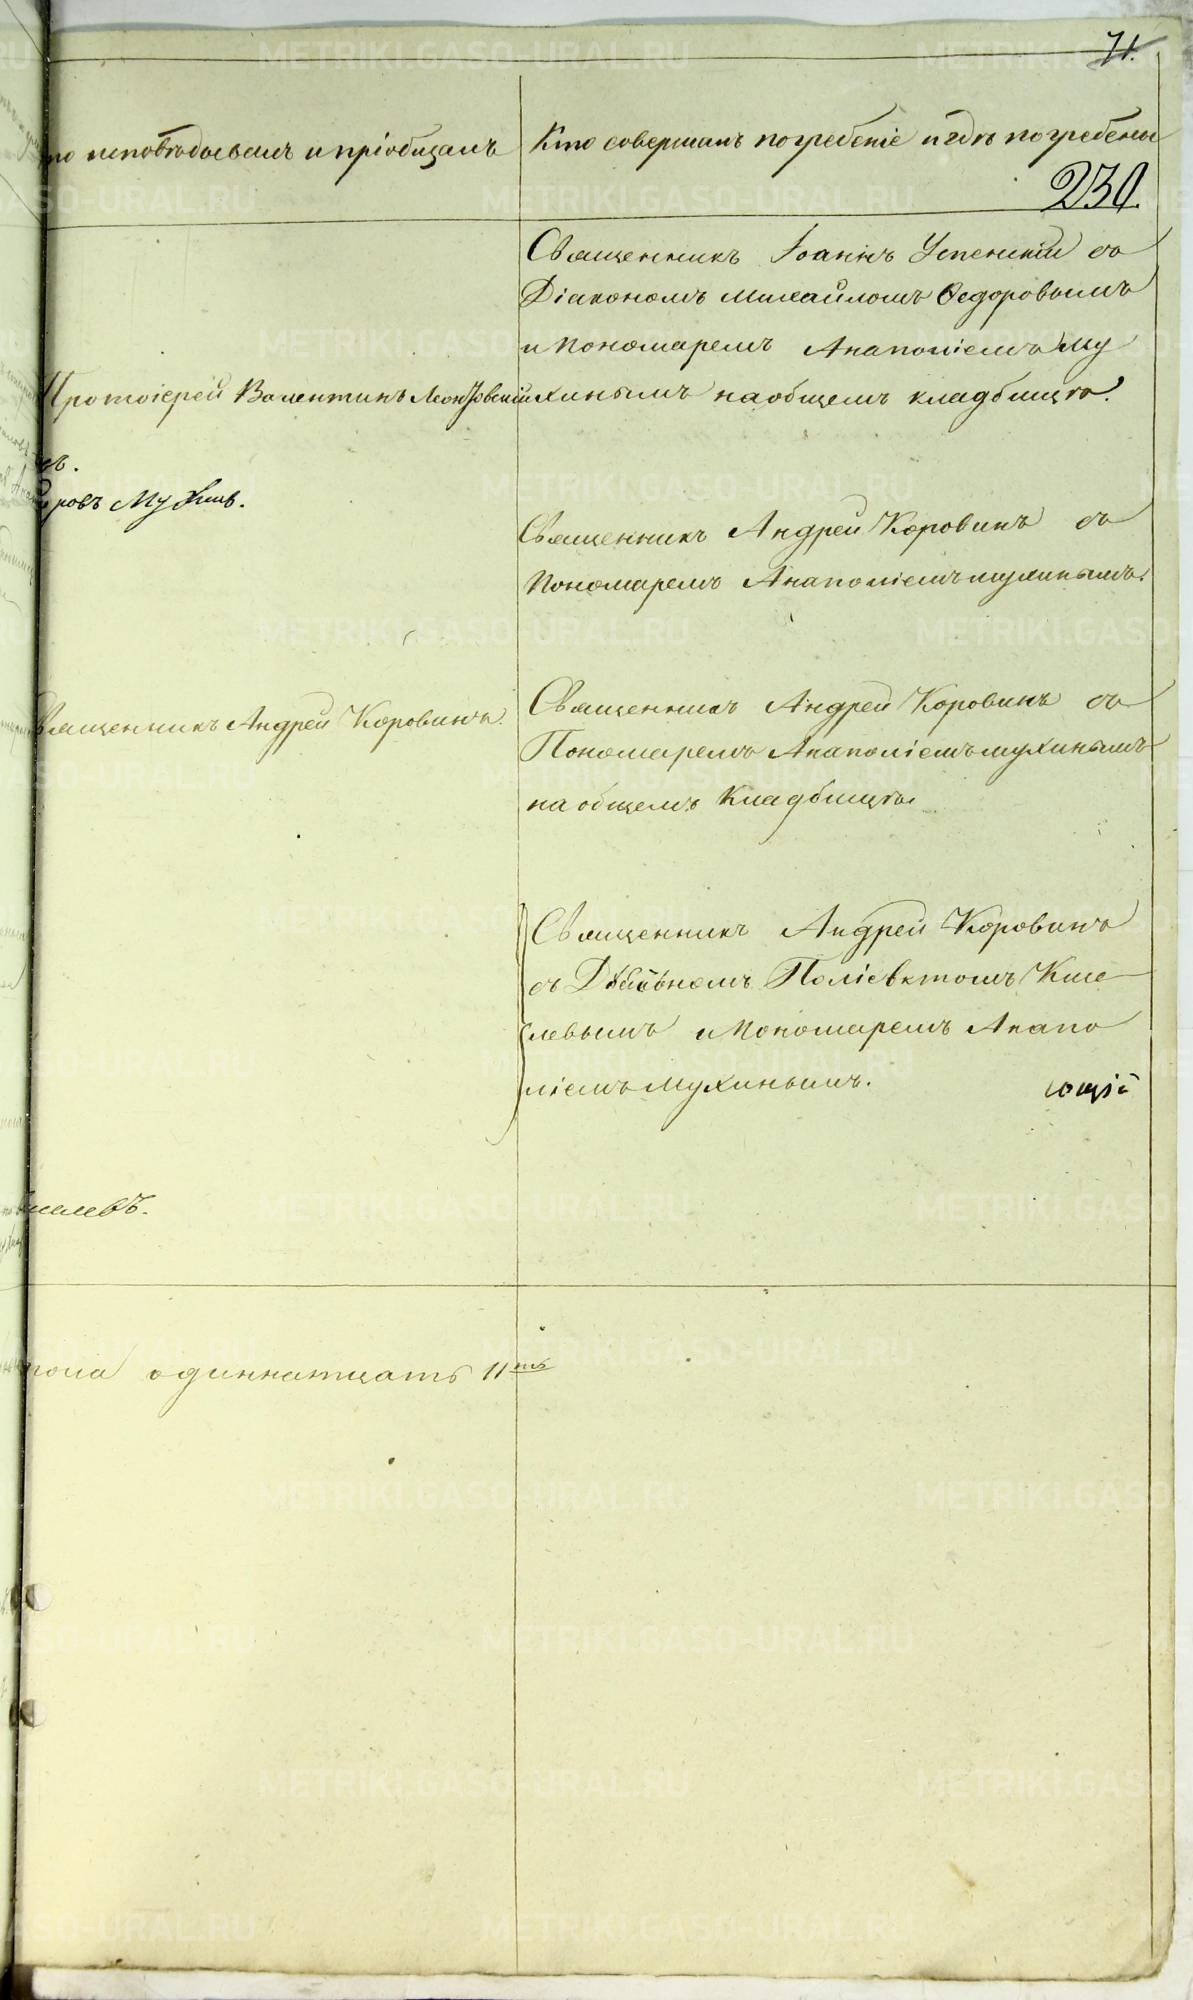 71.
то исповѣдывалъ и пріобщалъ
Кто совершалъ погребеніе и гдѣ погребены
230.
Священникъ Іоаннъ Успенскій съ
Діакономъ Михайломъ Ѳедоровымъ
и Пономаремъ Анатоліемъ Му
хинымъ на общемъ кладбищѣ.
Протоіерей Валентинъ Леонтовскій
ровъ Мухинъ.
Священникъ Андрей Коровинъ съ
Пономаремъ Анатоліемъ Мухинымъ.
Священникъ Андрей Коровинъ
Священникъ Андрей Коровинъ съ
Пономаремъ Анатоліемъ Мухинымъ
на общемъ Кладбищѣ.
Священникъ Андрей Коровинъ
съ Поліевктомъ Кисе
левымъ и Пономаремъ Анато
ліемъ Мухинымъ.
ющій
селевъ.
пола одиннатцать 11ть
METRIKI.GASO-URAL.RU